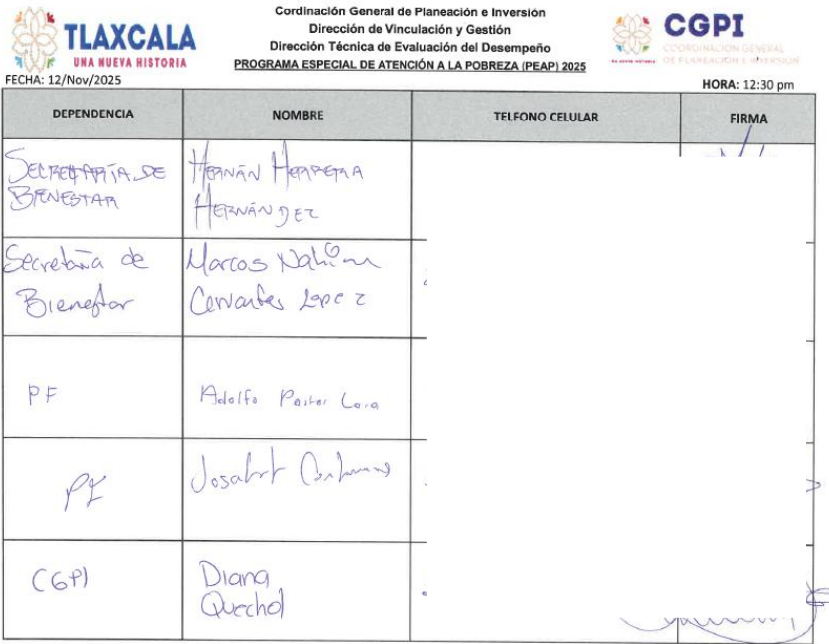 TLAXCALA
UNA NUEVA HISTORIA
Cordinación General de Planeación e Inversión
Dirección de Vinculación y Gestión
Dirección Técnica de Evaluación del Desempeño
PROGRAMA ESPECIAL DE ATENCIÓN A LA POBREZA (PEAP) 2025
CGPI
COORDINACIÓN GENERAL
DE PLANEACIÓN E INVERSIÓN
FECHA: 12/Nov/2025
HORA: 12:30 pm
DEPENDENCIA NOMBRE TELFONO CELULAR FIRMA
SECRETARÍA DE
BIENESTAR
HERNÁN HERRERA
HERNÁNDEZ
Secretaría de
Bienestar
Marcos Nahum
Cervantes Lopez
PF
Adolfo Pastor Lara
Josabet
CGPI
Diana
Quechol